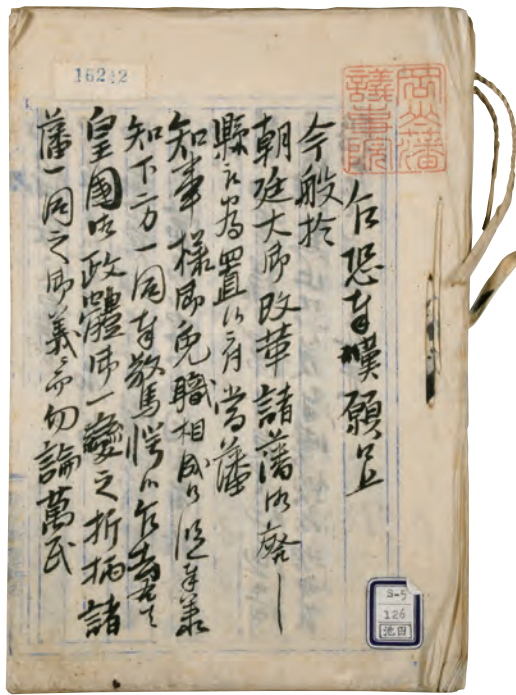 16242
岡山藩
議事院
乍恐奉嘆願口上
今般於
朝廷大御改革諸藩御廃し
縣被為置候ニ付當藩
知事様御免職相成候段奉承
知下方一同奉驚愕候乍去
皇國御政體御一變之折柄諸
藩一同之御義ニ而勿論萬民
S-5
126
池田